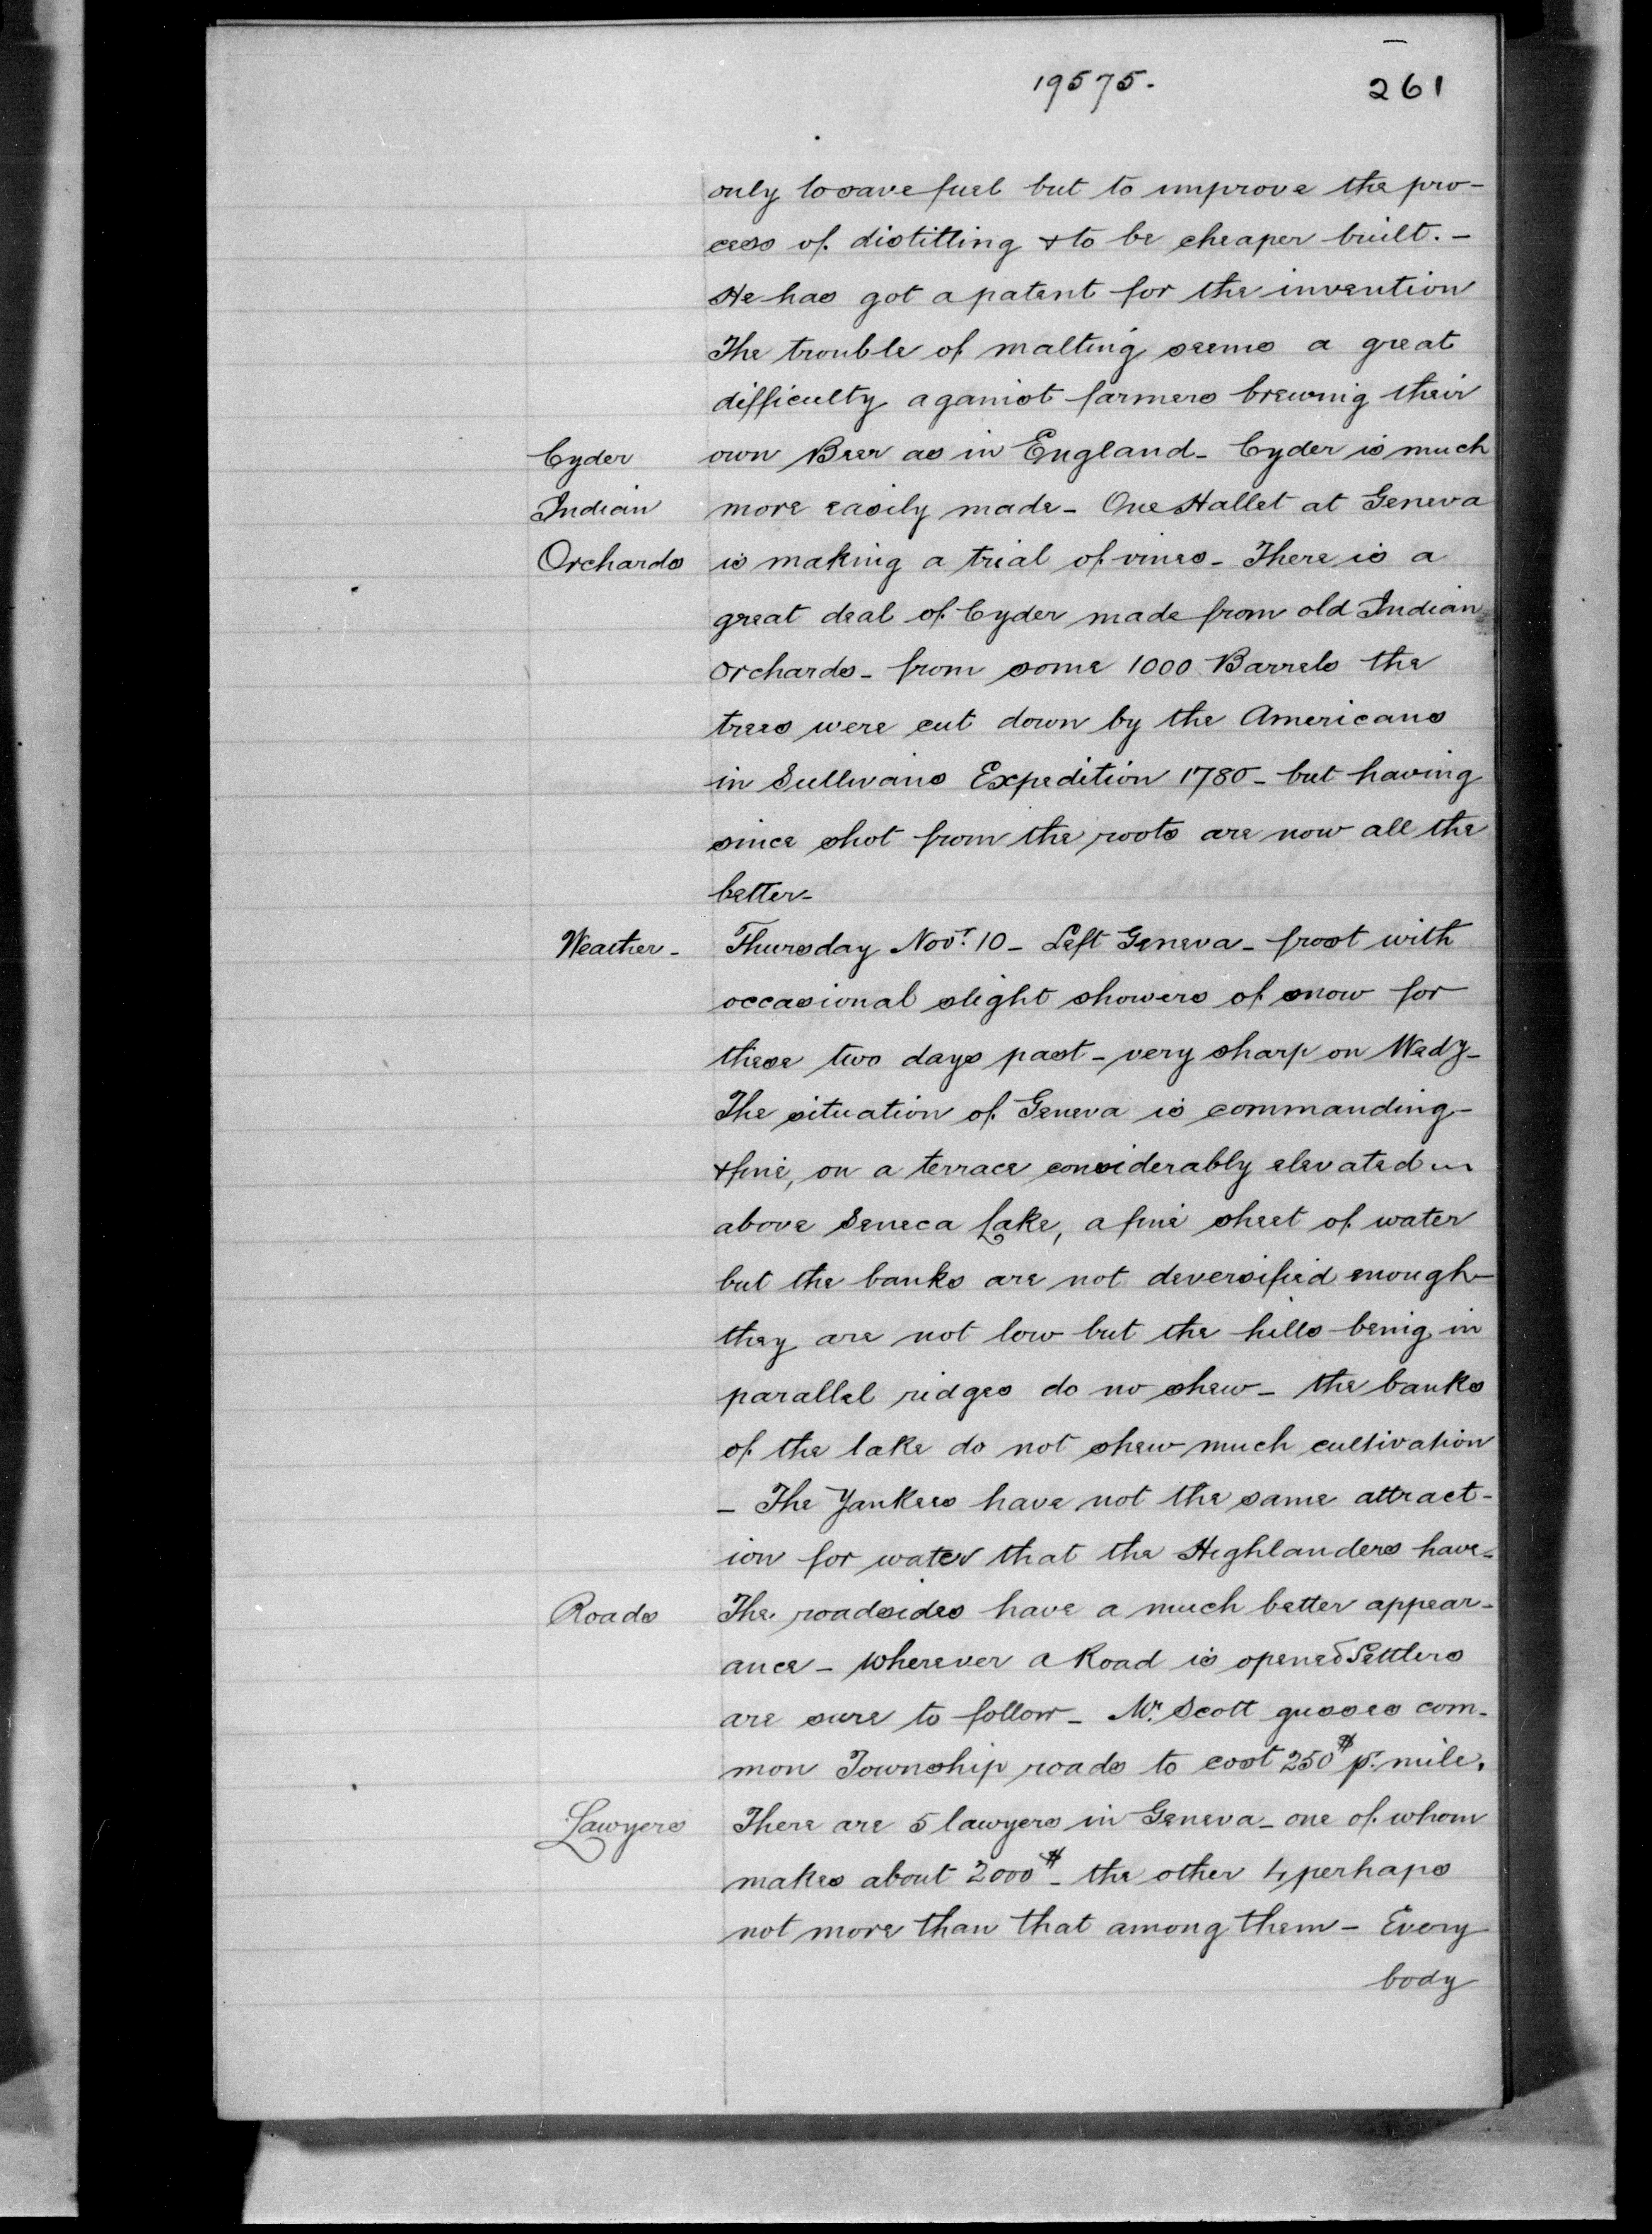 19575. 261
only to save fuel but to improve the pro-
cess of distilling & to be cheaper built. -
He has got a patent for the invention
The trouble of malting seems a great
difficulty against farmers brewing their
Cyder own Beer as in England - Cyder is much
Indian more easily made - One Hallet at Geneva
Orchards is making a trial of vines - There is a
great deal of Cyder made from old Indian
orchards - from some 1000 Barrels the
trees were cut down by the Americans
in Sullivans Expedition 1780 - but having
since shot from the roots are now all the
better -
Weather - Thursday Novr. 10 - Left Geneva - frost with
occasional slight showers of snow for
these two days past - very sharp on Wedy -
The situation of Geneva is commanding -
& fine, on a terrace considerably elevated
above Seneca Lake, a fine sheet of water
but the banks are not deversified enough -
they are not low but the hills being in
parallel ridges do no shew - the banks
of the lake do not shew much cultivation
- The Yankees have not the same attract-
ion for water that the Highlanders have -
Roads The roadsides have a much better appear-
ance - wherever a Road is opened Settlers
are sure to follow - Mr. Scott guesses com-
mon Township roads to cost 250$ pr. mile.
Lawyers There are 5 lawyers in Geneva - one of whom
makes about 2000$ - the other 4 perhaps
not more than that among them - Every
body